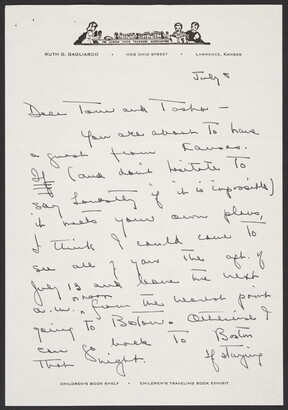 THE KANSAS STATE TEACHERS ASSOCIATION
RUTH G. GAGLIARDO • 1108 OHIO STREET • LAWRENCE, KANSAS
July 8
Dear Tom and Tasha –
You are about to have
a guest from Kansas.
If (and don't hesitate to
say honestly if it is impossible)
it meets your own plans,
I think I could come to
see all of you the aft. of
July 13 and leave the next
a.m. or noon from the nearest point
going to Boston. Otherwise I
can go back to Boston
that night. If staying
CHILDREN'S BOOK SHELF • CHILDREN'S TRAVELING BOOK EXHIBIT